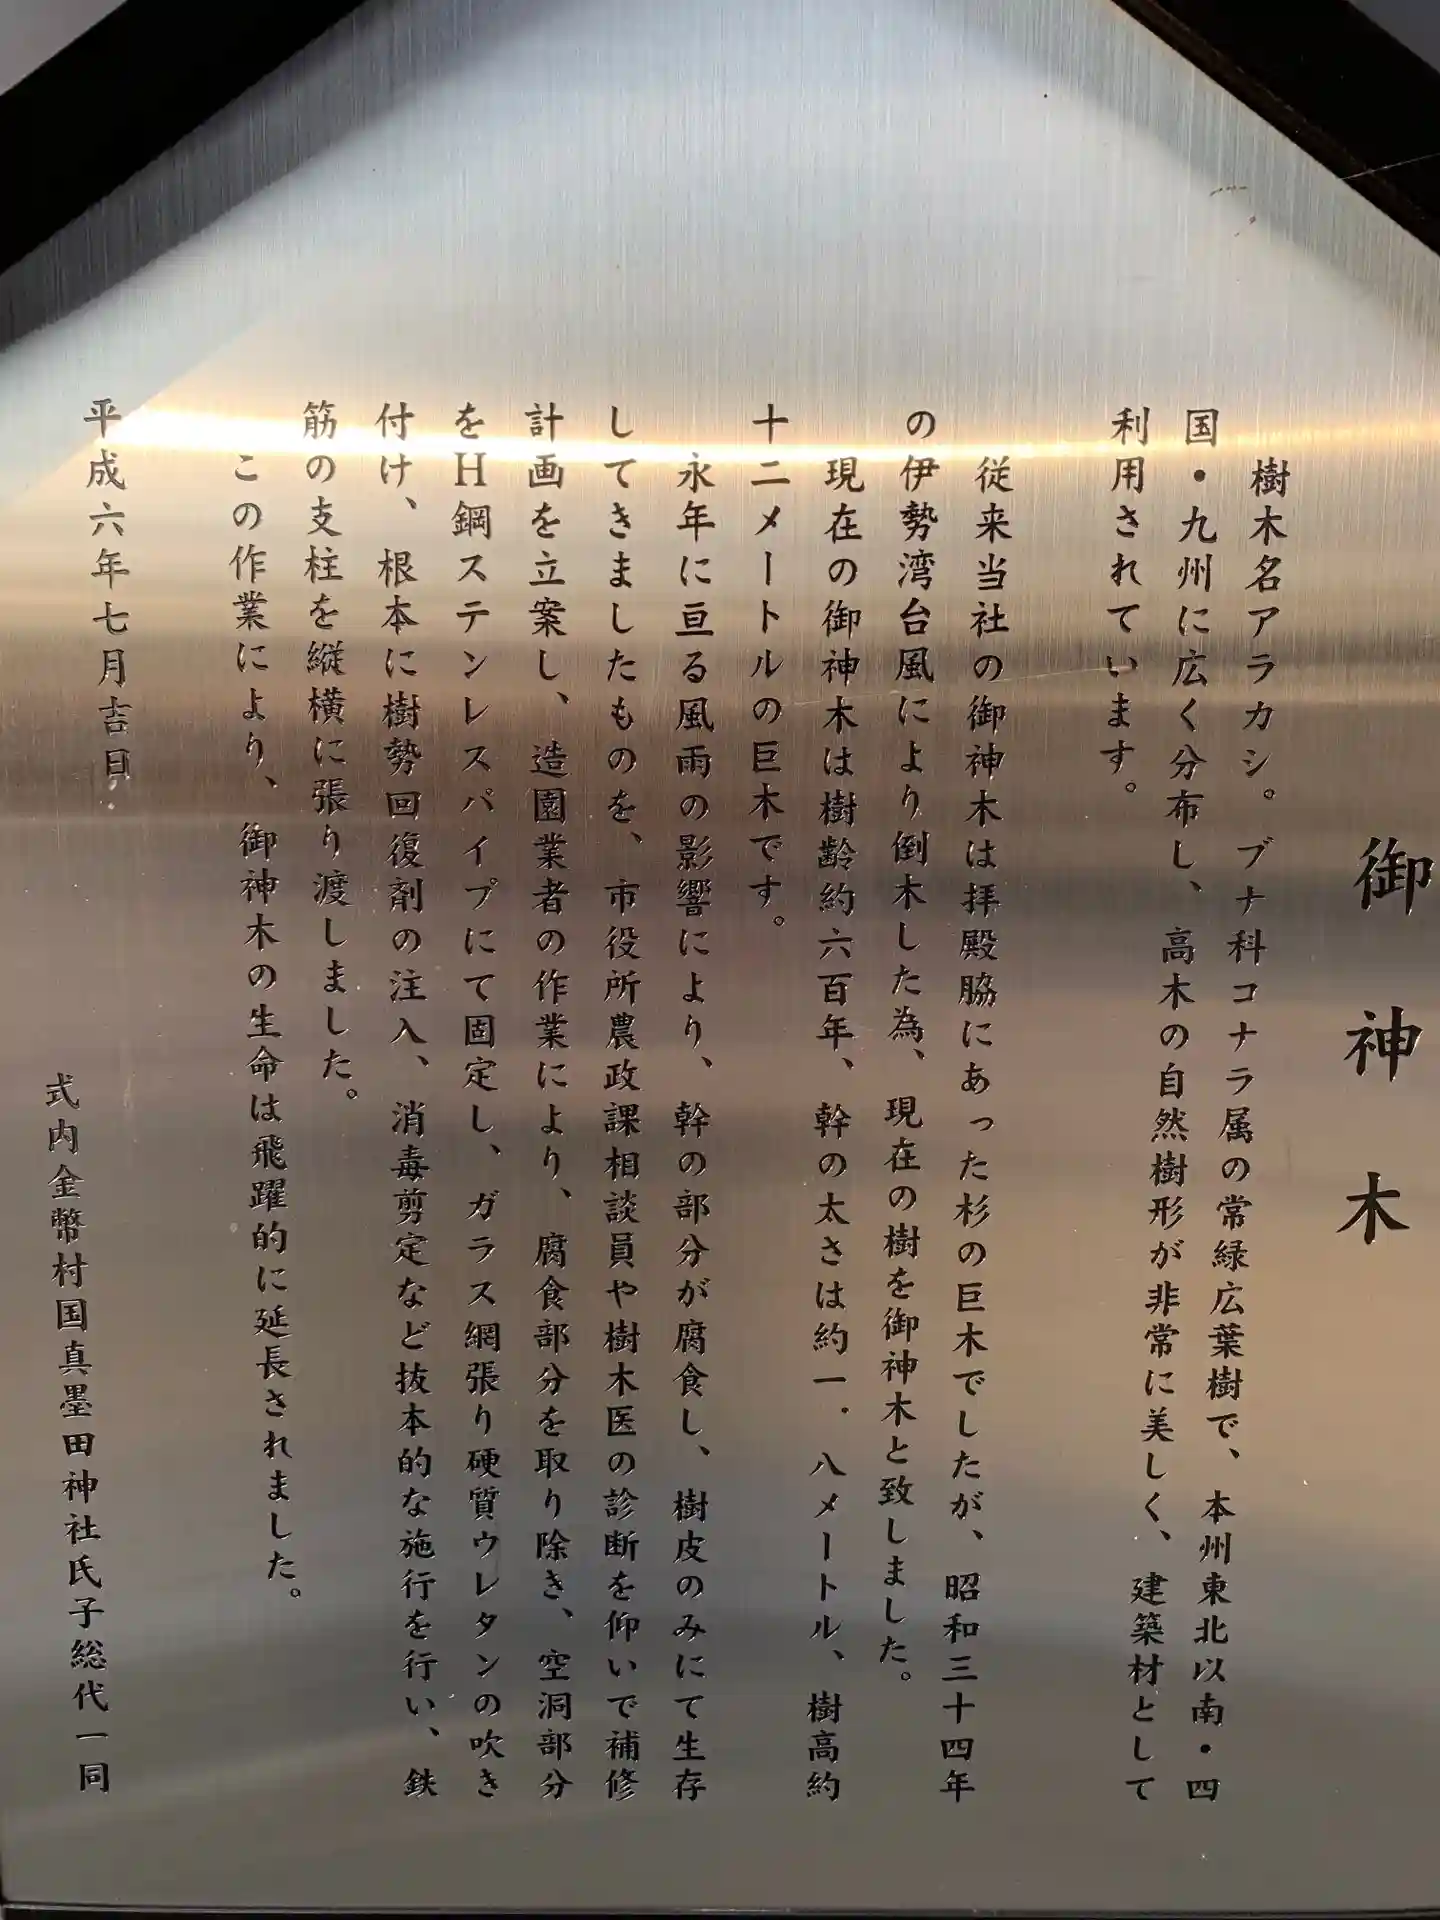 御神木
樹木名アラカシ。ブナ科コナラ属の常緑広葉樹で、本州東北以南・四
国・九州に広く分布し、高木の自然樹形が非常に美しく、建築材として
利用されています。
従来当社の御神木は拝殿脇にあった杉の巨木でしたが、昭和三十四年
の伊勢湾台風により倒木した為、現在の樹を御神木と致しました。
現在の御神木は樹齢約六百年、幹の太さは約一．八メートル、樹高約
十二メートルの巨木です。
永年に亘る風雨の影響により、幹の部分が腐食し、樹皮のみにて生存
してきましたものを、市役所農政課相談員や樹木医の診断を仰いで補修
計画を立案し、造園業者の作業により、腐食部分を取り除き、空洞部分
をH鋼ステンレスパイプにて固定し、ガラス網張り硬質ウレタンの吹き
付け、根本に樹勢回復剤の注入、消毒剪定など抜本的な施行を行い、鉄
筋の支柱を縦横に張り渡しました。
この作業により、御神木の生命は飛躍的に延長されました。
平成六年七月吉日
式内金幣村国真墨田神社氏子総代一同